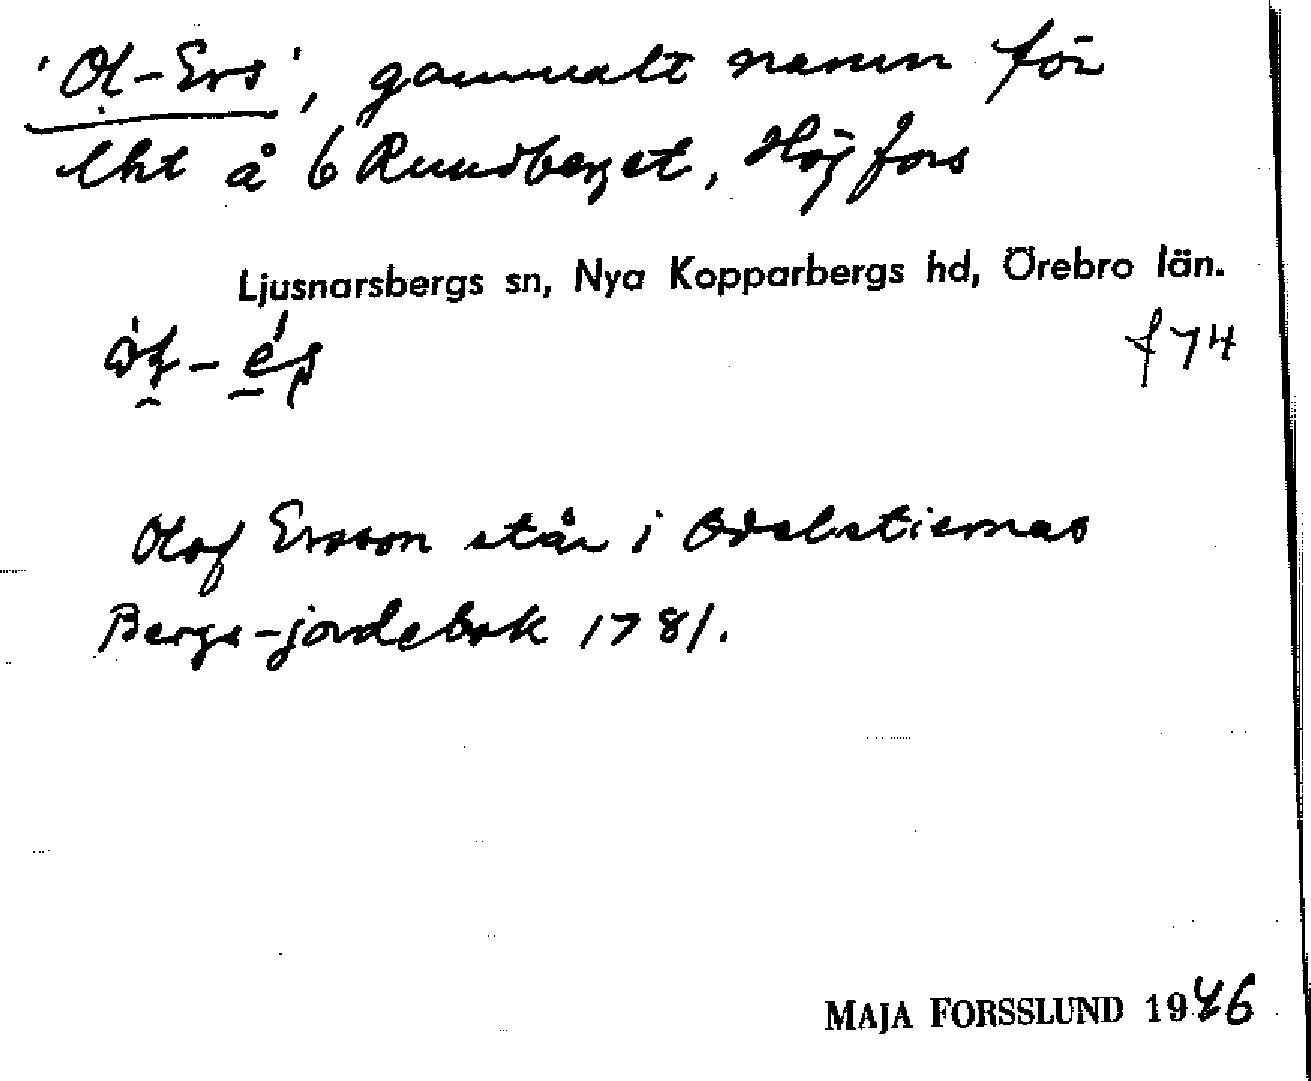 'Ol-Ers', gammalt namn för
lht å 6 Rundberget, Högfors
Ljusnarsbergs sn, Nya Kopparbergs hd, Örebro län.
f 74
Olof Ersson står i Odelstiernas
Bergs-jordebok 1781.
MAJA FORSSLUND 1946